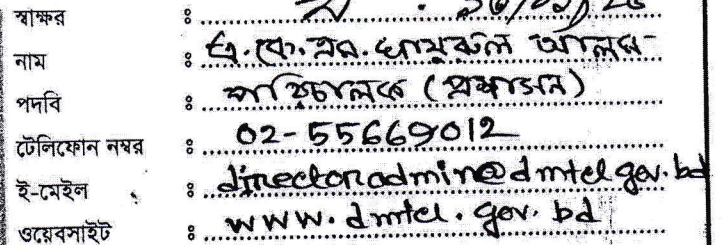 স্বাক্ষর :
নাম : এ.কে.এম. খায়রুল আলম
পদবি : পরিচালক (প্রশাসন)
টেলিফোন নম্বর : 02-55669012
ই-মেইল : directoradmin@dmtcl.gov.bd
ওয়েবসাইট : www.dmtcl.gov.bd